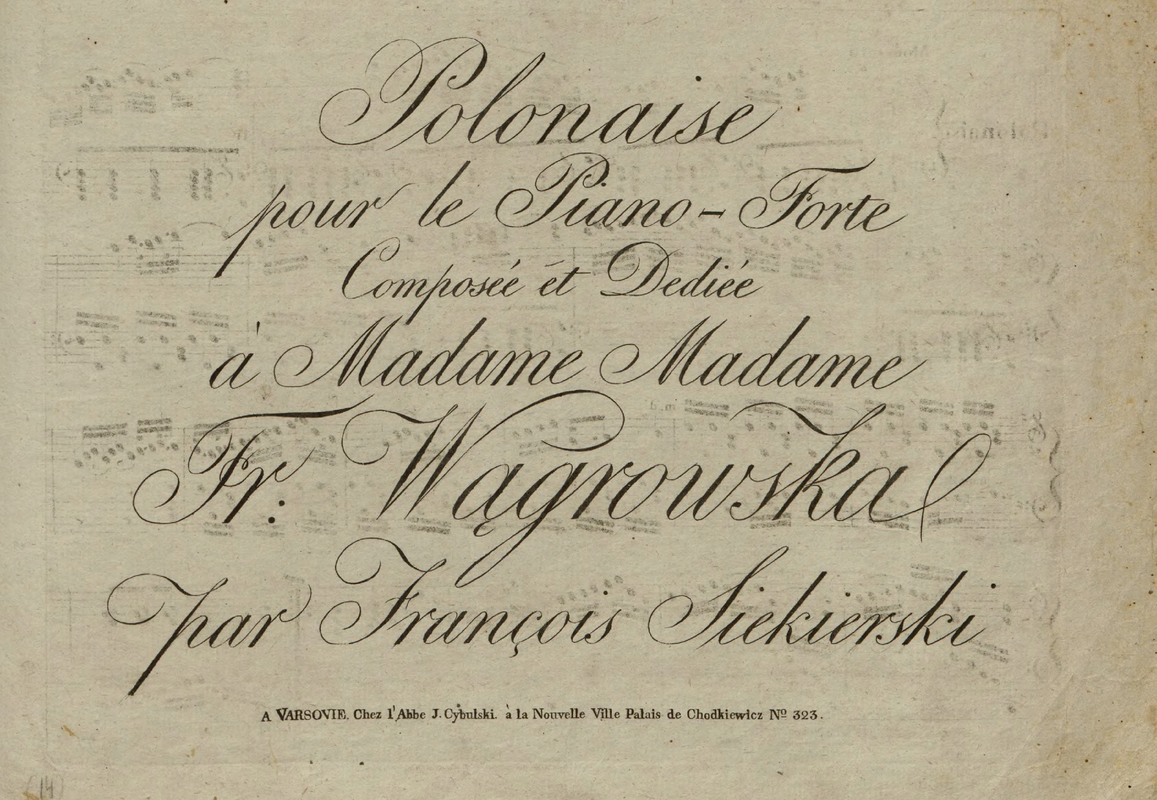 Polonaise
pour le Piano-Forte
Composée et Dediée
à Madame Madame
Fr: Wągrowska
par François Siekierski
A VARSOVIE. Chez l'Abbe J. Cybulski. à la Nouvelle Ville Palais de Chodkiewicz Nº 323.
(14)